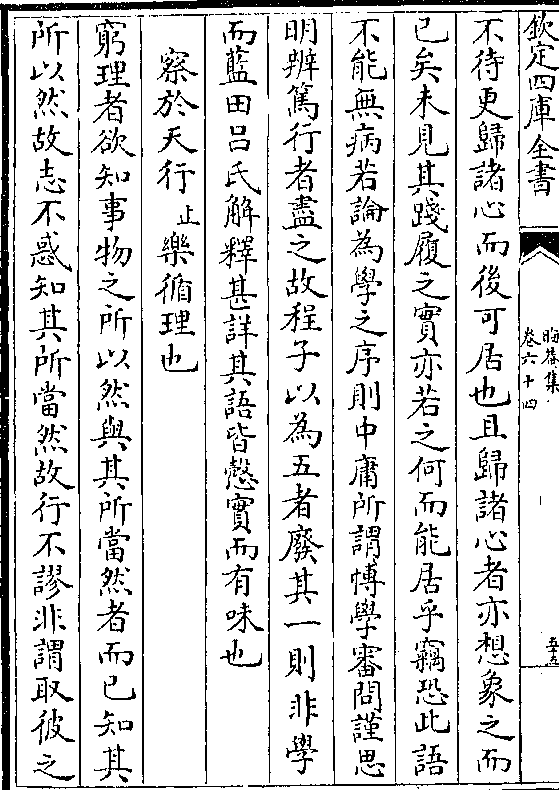 欽定四庫全書
晦菴集
卷六十四
五十五
不待更歸諸心而後可居也且歸諸心者亦想象之而
已矣未見其踐履之實亦若之何而能居乎竊恐此語
不能無病若論為學之序則中庸所謂博學審問謹思
明辨篤行者盡之故程子以為五者廢其一則非學
而藍田呂氏解釋甚詳其語皆慤實而有味也
察於天行止樂循理也
窮理者欲知事物之所以然與其所當然者而已知其
所以然故志不惑知其所當然故行不謬非謂取彼之